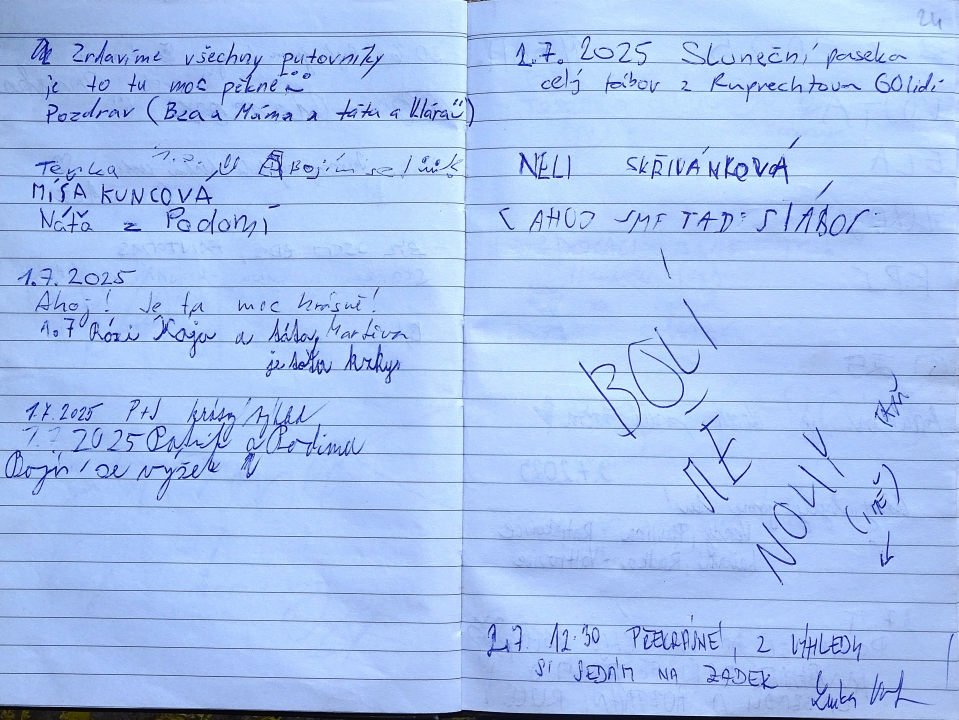 Zrdavíme všechny putovníky
je to tu moc pěkné
Pozdrav (Bea a Máma a táta a Klára)
Terka 1.7. Bojím se
MÍŠA KUNCOVÁ
Náťa z Podomí
1.7.2025
Ahoj! Je ta moc krásně!
1.7 Rózi Kaja a táta, Martina
je táta
1.7.2025 P+J
2025 Patrik a Rodina
Bojí se vyžek
24
1.7. 2025 Sluneční paseka
celý tábor z Ruprechtova 60 lidí
NELI SKŘIVÁNKOVÁ
AHOJ SME TADI S TÁBOR
BOLI
MĚ
NOHY
2.7. 12:30 PŘEKRÁSNÉ, Z VÝHLEDU
SI SEDÁM NA ZADEK